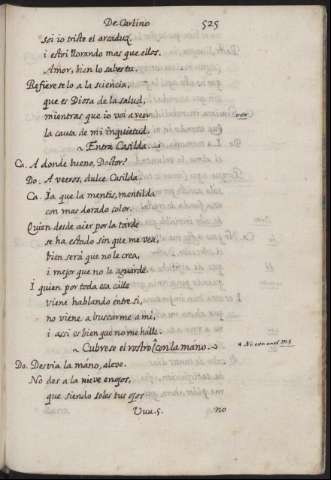 De Carlino 525
soi io triste el arcaduz,
i estoi llorando mas que ellos.
Amor, bien lo sabes tu.
Refiereselo a la sciencia,
que es Diosa de la salud,
mientras que io voi a veer
la causa de mi inquietud.
Entra Casilda.
Ca. A donde bueno, Doctor?
Do. A veeros, dulce Casilda.
Ca. Ia que la mentis, mentilda
con mas dorado color.
Quien desde aier por la tarde
se ha estado sin que me vea,
bien será que no le crea,
i mejor que no le aguarde.
I quien por toda esta calle
viene hablando entre si,
no viene a buscarme a mi,
i assi es bien que no me halle.
Cubrese el rostro con la mano.
Do. Desvia la mano, aleve.
No des a la nieve enojos,
que siendo soles tus ojos
Vuu. 5. no